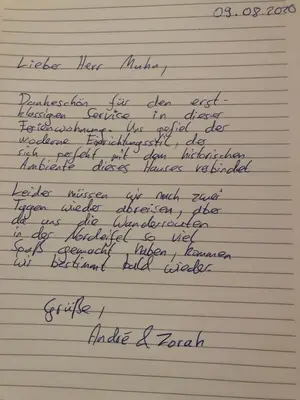 09.08.2020
Lieber Herr Muhn,
Dankeschön für den erst-
klassigen Service in dieser
Ferienwohnung. Uns gefiel der
moderne Einrichtungsstil, der
sich perfekt mit dem historischen
Ambiente dieses Hauses verbindet
Leider müssen wir nach zwei
Tagen wieder abreisen, aber
da uns die Wanderrouten
in der Nordeifel so viel
Spaß gemacht haben, kommen
wir bestimmt bald wieder.
Grüße,
André & Zorah